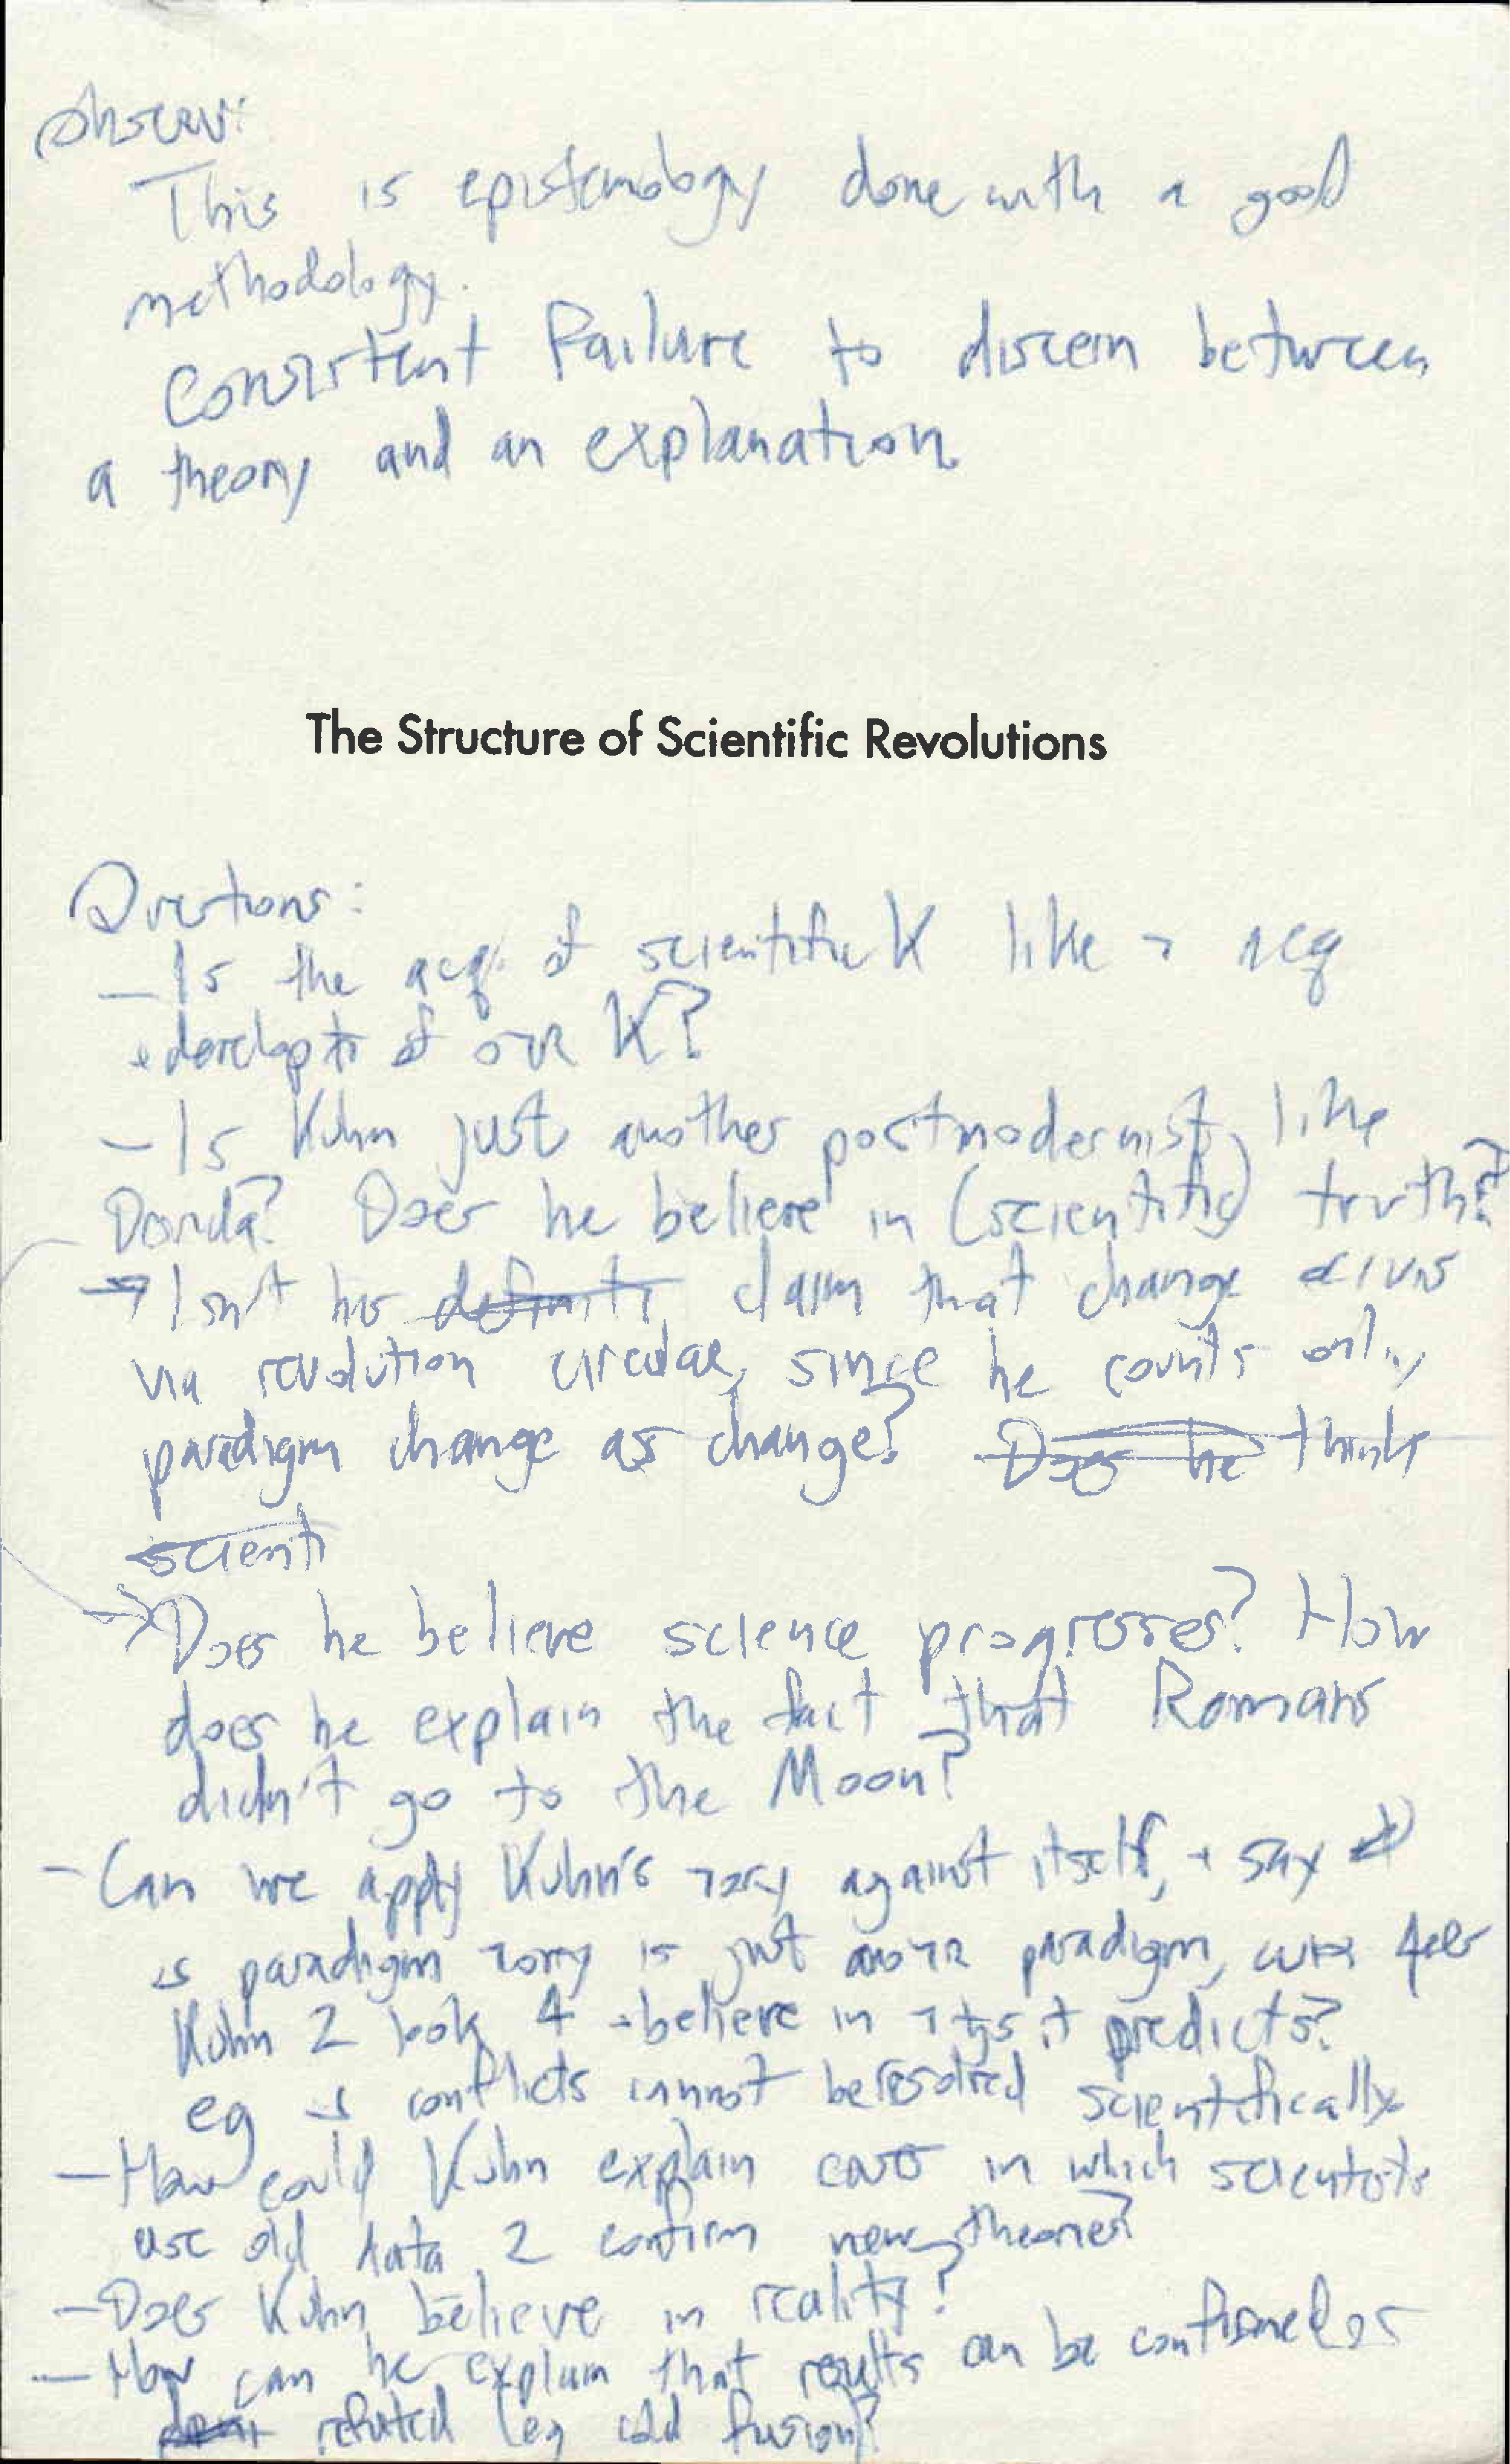 Observ:
This is epistemology done with a good
methodology.
Consistent failure to discern between
a theory and an explanation
The Structure of Scientific Revolutions
Questions:
- Is the acq. of scientific K like acq
+ of our K?
- Is Kuhn just another postmodernist, like
Derrida? Does he believe in (scientific) truth?
→ Isn't his claim that change occurs
via revolution circular, since he counts only
paradigm change as change? Does he think
scienti
→ Does he believe science progresses? How
does he explain the fact that Romans
didn't go to the Moon?
- Can we apply Kuhn's against itself, + say
paradigm is just paradigm,
Kuhn 2 look 4 + believe in it predicts?
eg conflicts cannot be resolved scientifically.
- How could Kuhn explain cases in which scientists
use old data 2 confirm new theories?
- Does Kuhn believe in reality?
- How can he explain that results can be confirmed or
refuted (eg cold fusion)?